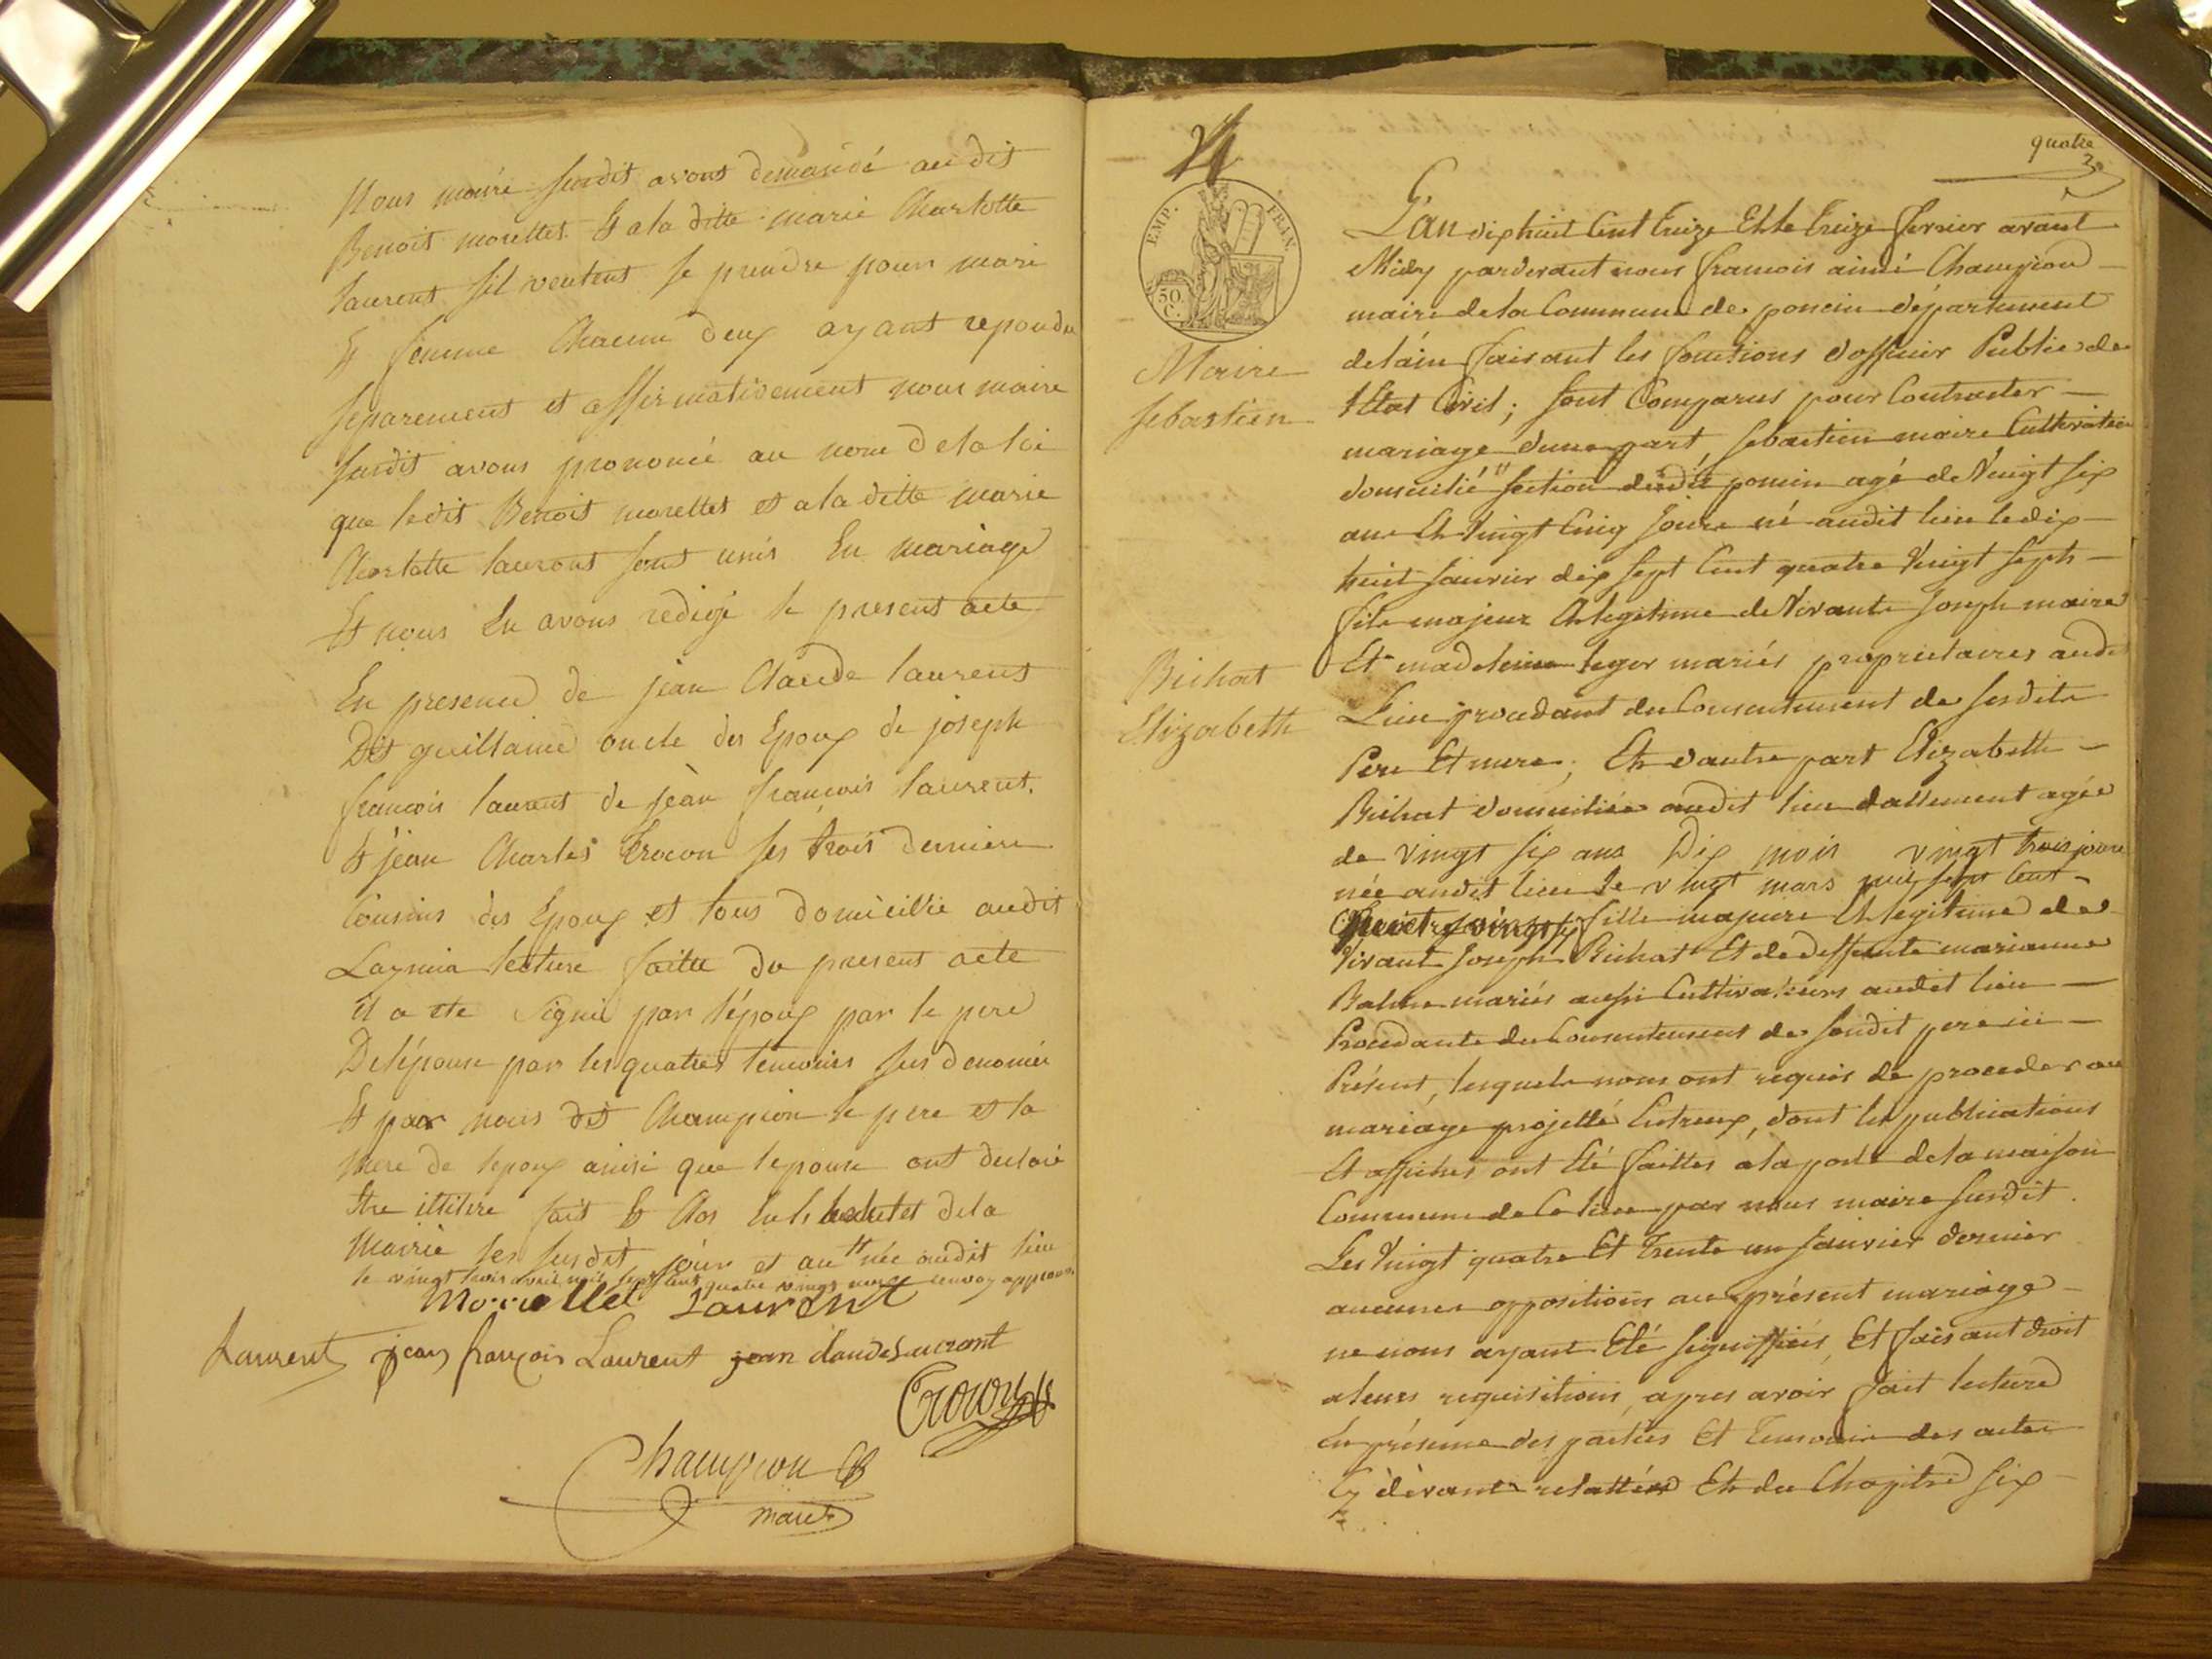 Nous maire susdit avons demandé audit
Benoit morettet Et a la ditte marie Charlotte
laurent sil veulent se prendre pour mari
Et femme Chacun deux ayant repondu
separement et affirmativement nous maire
susdit avons prononcé au nom de la loi
que ledit Benoit morettet et a la ditte marie
Charlotte laurent sont unis En mariage
Et nous En avons redigé le present acte
En presence de jean Claude laurent
Dit guillaume oncle des Epoux de joseph
francois laurent de jean francois laurent.
Et jean Charles Crocon les trois derniere
Cousins des Epoux et tous domicillié audit
lecture faitte du present acte
il a ete signé par l'époux par le pere
De l'épouse par les quatres temoins sus denomés
Et par nous dit Champion le pere et la
Mere de lepoux ainsi que lepouse ont declaré
Etre illitere fait Et Clos En la de la
Mairie les susdit jour et an née audit lieu
le vingt trois avril mil sept cent quatre vingt onze renvoy approuvé
Morettet Laurent
Laurent jean françois Laurent jean claude Laurent
Crocon
Champion
maire
quatre
24
EMP. FRAN.
50 C.
Maire
Sebastien
Bichat
Elizabeth
L'an dix huit Cent treize Et le treize fevrier avant
Midy pardevant nous francois aimé Champion
maire de la Commune de poncin département
de láin faisant les fonctions d'officier Public de
l'Etat Civil; sont Comparus pour Contracter
mariage d'une part sebastien maire Cultivateur
domicilié section dudit poncin agé de Vingt six
ans Et Vingt Cinq jours né audit lieu le dix
huit janvier dix sept Cent quatre Vingt sept
fils majeur Et legitime de Vivants Joseph maire
Et madeleine leger mariés proprietaires audit
Lieu procedant du Consentement de sesdits
Pere Et mere; Et d'autre part Elizabeth
Bichat domiciliée audit lieu dallement agée
de vingt six ans Dix mois vingt trois jours
née audit lieu le vingt mars mil sept Cent
quatre vingt six fille majeure Et legitime de
Vivant Joseph Bichat Et de deffunte marianne
Balme mariés aussi Cultivateurs audit lieu
Procedante du Consentement de sondit pere ici
Présent, lesquels nous ont requis de proceder au
mariage projetté Entreux, dont les publications
Et affiches ont Eté faittes a la porte de la maison
Commune de Ce lieu par nous maire susdit
Les Vingt quatre Et Trente un janvier dernier
aucunes oppositions au présent mariage
ne nous ayant Eté signiffiées, Et faisant droit
a leurs requisitions, apres avoir fait lecture
En présence des parties Et Temoins des actes
Cy dèvant relattés Et du Chapitre six